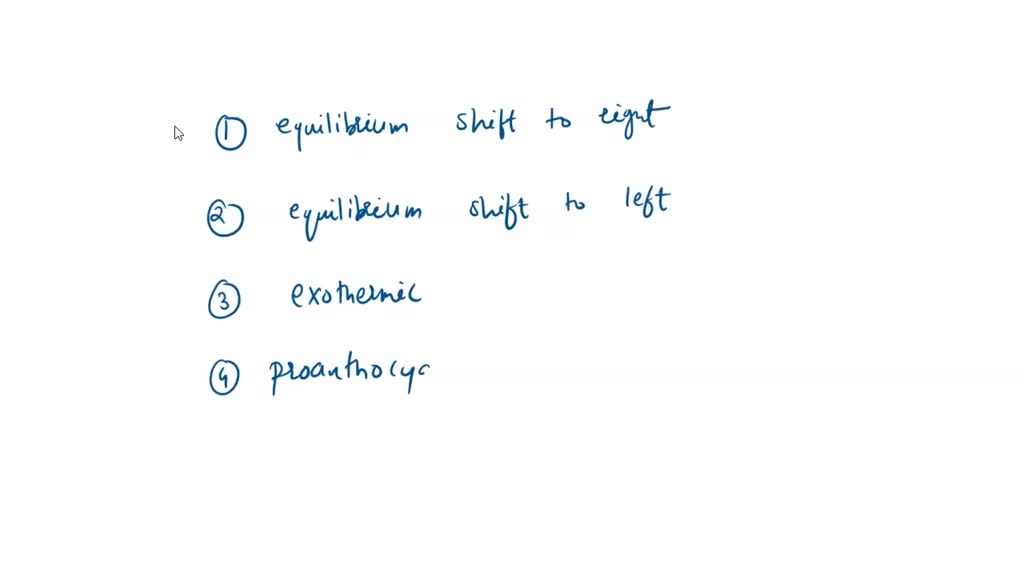 ① equilibrium shift to right
② equilibrium shift to left
③ exothermic
④ proanthocyc